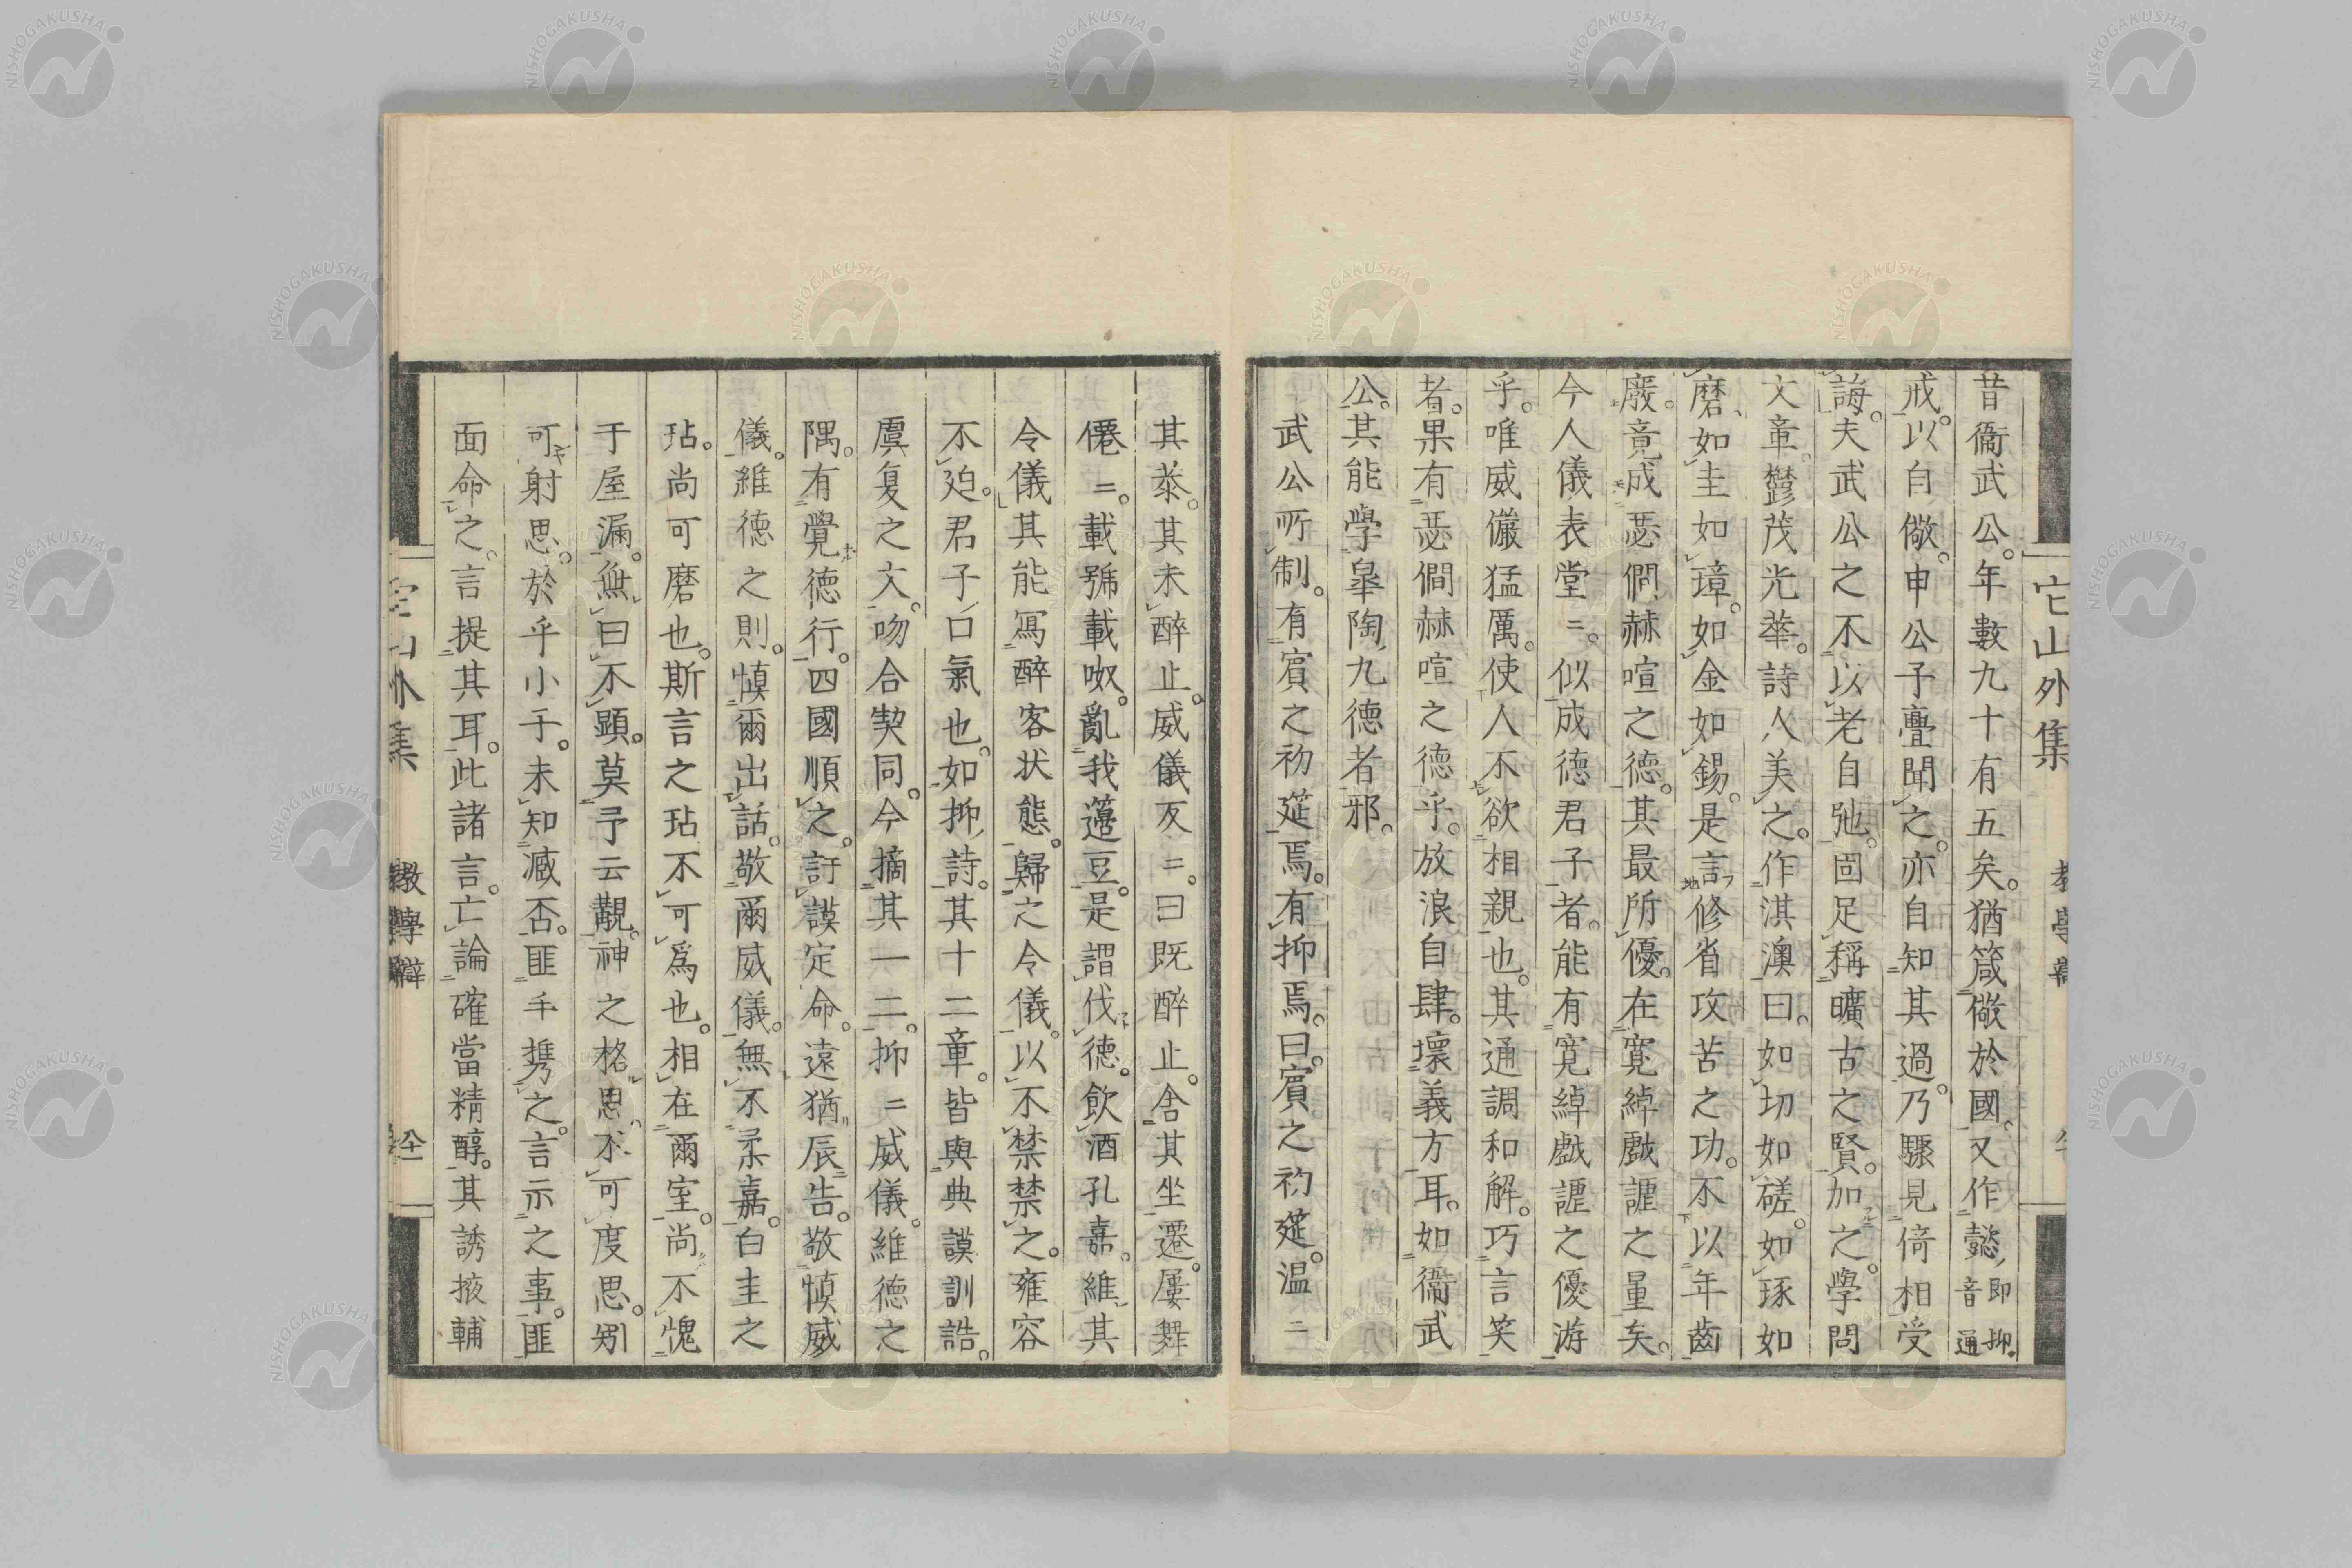 它山外集
昔衞武公。年數九十有五矣。猶箴儆於國。又作懿、即抑。音通
戒。以自儆。申公子亹聞之。亦自知其過。乃驟見倚相受
誨。夫武公之不以老自弛。固足稱曠古之賢。加之。學問
文章。鬱茂光華。詩人美之。作淇澳曰。如切如磋。如琢如
磨、如圭如璋。如金如錫。是言修省攻苦之功。不以年齒
廢。竟成瑟僩赫喧之德。其最所優。在寬綽戲謔之量矣。
今人儀表堂二。似成德君子者。能有寬綽戲謔之優游
乎。唯威儼猛厲。使人不欲相親也。其通調和解。巧言笑
者。果有瑟僩赫喧之德乎。放浪自肆。壞義方耳。如衞武
公。其能學皐陶九德者邪。
武公所制。有賓之初筵焉。有抑焉。曰。賓之初筵。温二
其恭。其未醉止。威儀反二。曰既醉止。舍其坐遷。屢舞
僊二。載號載呶。亂我籩豆。是謂伐德。飲酒孔嘉。維其
令儀。其能寫醉客状態。歸之令儀。以不禁禁之。雍容
不廹。君子口氣也。如抑詩。其十二章。皆與典謨訓誥。
虞夏之文。吻合契同。今摘其一二。抑二威儀。維德之
隅。有覺德行。四國順之。訏謨定命。遠猶辰告。敬慎威
儀。維德之則。慎爾出話。敬爾威儀。無不柔嘉。白圭之
玷。尚可磨也。斯言之玷不可爲也。相在爾室。尚不愧
于屋漏。無曰不顯。莫予云覯。神之格思。不可度思。矧
可射思。於乎小子。未知臧否。匪手携之。言示之事。匪
面命之。言提其耳。此諸言。亡論確當精醇。其誘掖輔
它山外集 敎學辯